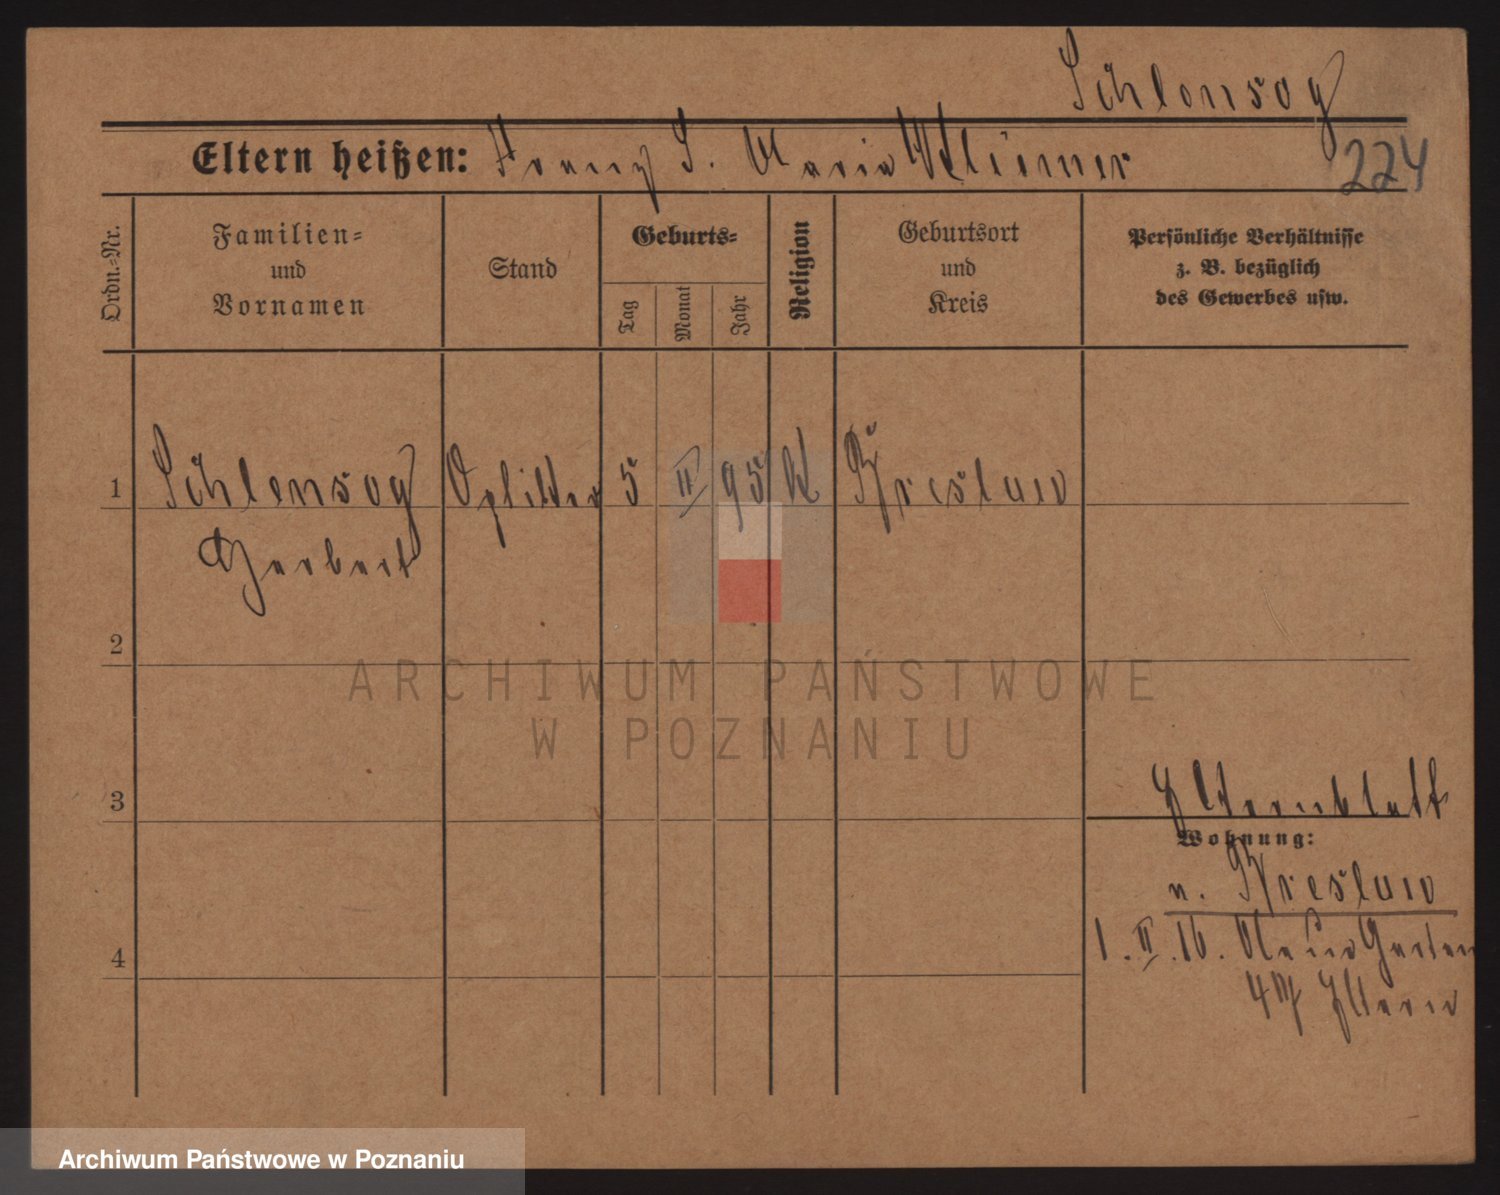 Schlensog
Eltern heißen: Franz S. Maria
224
Ordn.-Nr.
Familien-
und
Vornamen
Stand
Geburts-
Tag
Monat
Jahr
Religion
Geburtsort
und
Kreis
Persönliche Verhältnisse
z. B. bezüglich
des Gewerbes usw.
1 Schlensog 5 II 95 K Breslau
Herbert
2
ARCHIWUM PAŃSTWOWE
W POZNANIU
3
Elternblatt
Wohnung:
n. Breslau
4
1. II. 16. Garten
Eltern
Archiwum Państwowe w Poznaniu